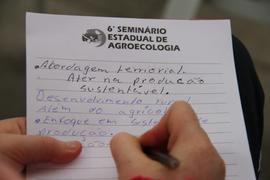 6º SEMINÁRIO
ESTADUAL DE
AGROECOLOGIA
• Abordagem territorial.
Ater na produção
sustentável.
Desenvolvimento rural
além do agrícola
• Enfoque em sistemas de
produção.